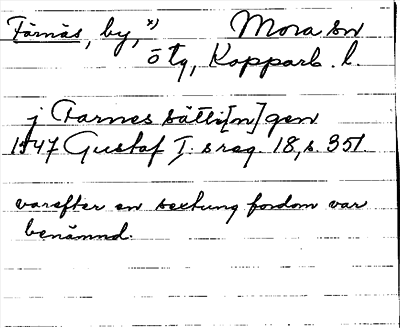 Färnäs, by, x) Mora sn
ö tg, Kopparb. l.
j Farnes sätti[n]gen
1547 Gustaf I:s reg. 18, s. 351.
varefter en sextung fordom var
benämnd.